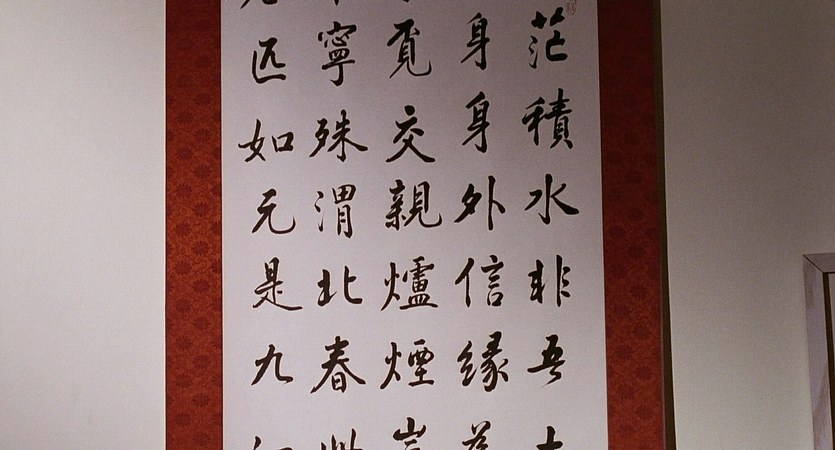 茫積水非吾
身身外信緣
覓交親爐煙
寧殊渭北春
匹如元是九